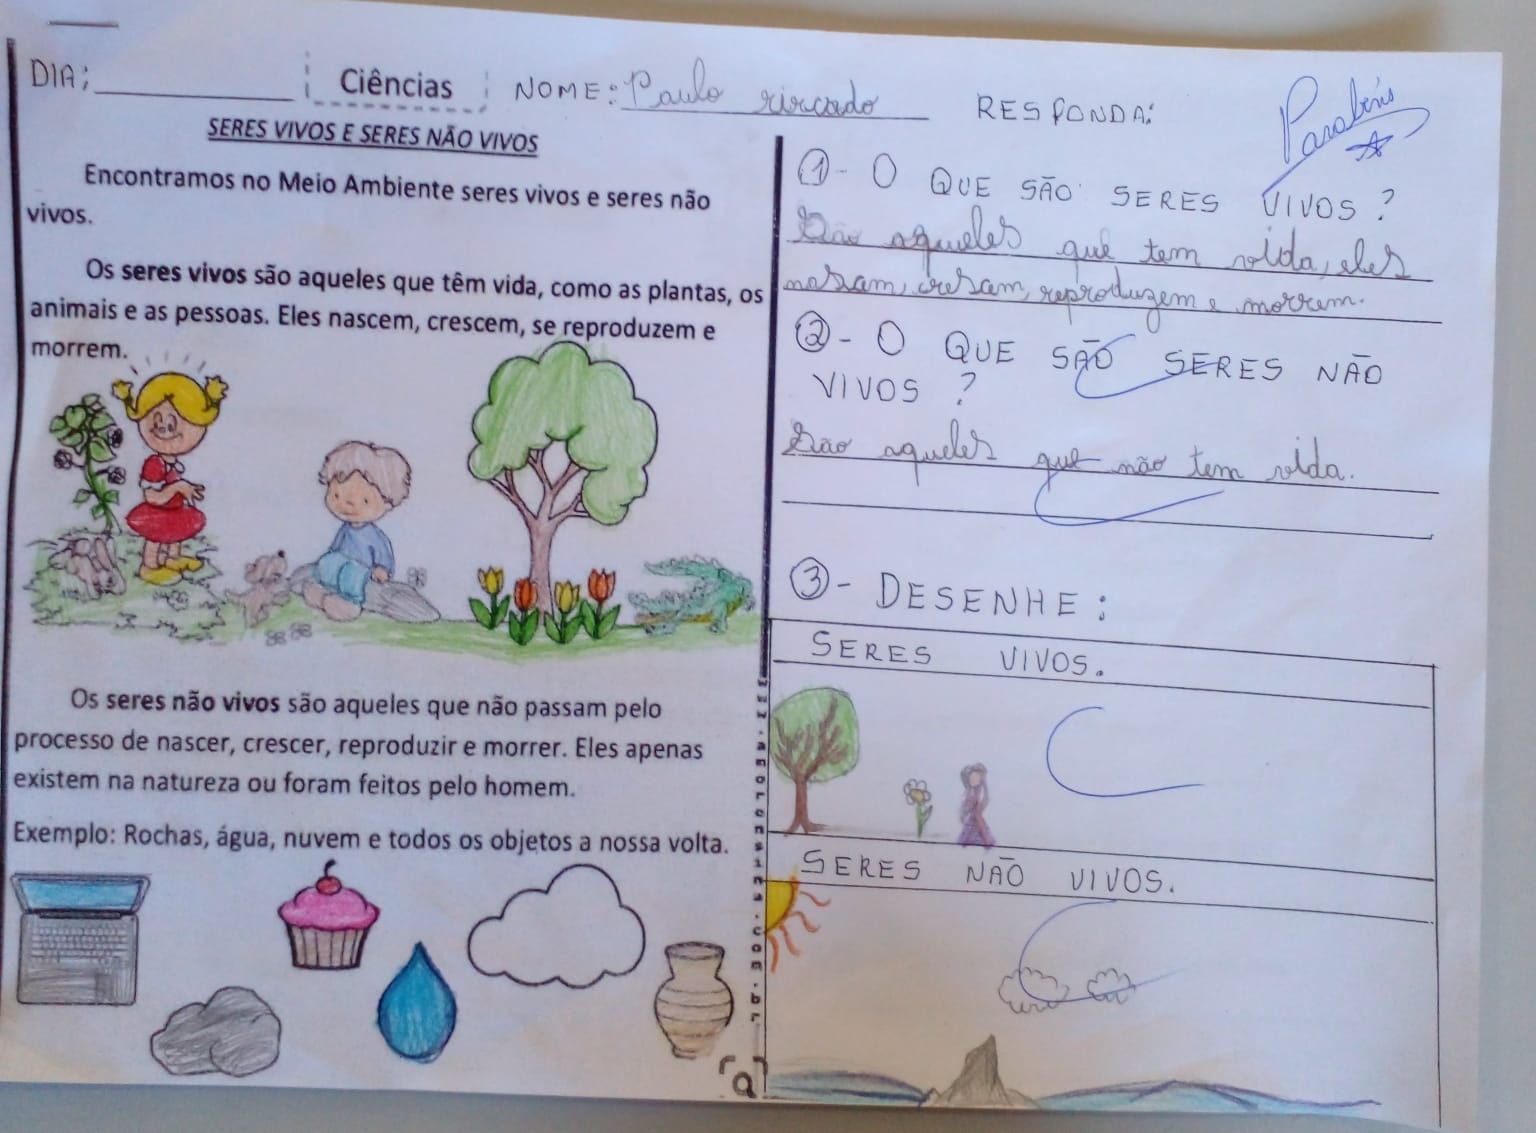 DIA; Ciências NOME: Paulo riscado
SERES VIVOS E SERES NÃO VIVOS
Encontramos no Meio Ambiente seres vivos e seres não
vivos.
Os seres vivos são aqueles que têm vida, como as plantas, os
animais e as pessoas. Eles nascem, crescem, se reproduzem e
morrem.
Os seres não vivos são aqueles que não passam pelo
processo de nascer, crescer, reproduzir e morrer. Eles apenas
existem na natureza ou foram feitos pelo homem.
Exemplo: Rochas, água, nuvem e todos os objetos a nossa volta.
RESPONDA:
Parabéns
1- O QUE SÃO SERES VIVOS?
São aqueles que tem vida, eles
nasam, cresam, reproduzem e morrem.
2- O QUE SÃO SERES NÃO
VIVOS?
São aqueles que não tem vida.
3- DESENHE:
SERES VIVOS.
SERES NÃO VIVOS.